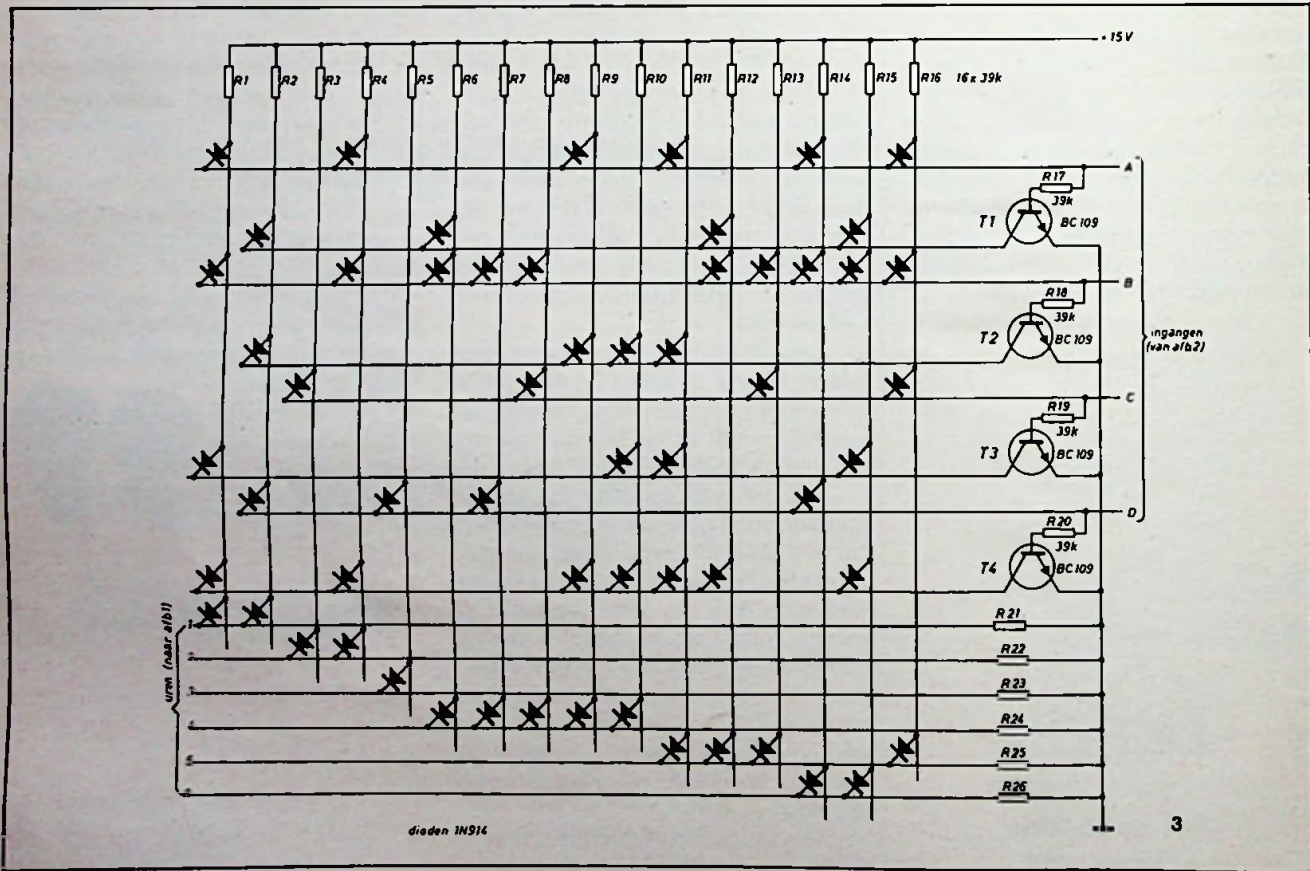 + 15V
R1 R2 R3 R4 R5 R6 R7 R8 R9 R10 R11 R12 R13 R14 R15 R16 16 x 39k
A
R17
39k
T1 BC 109
B
R18
39k
T2 BC 109
ingangen
(van afb2)
C
R19
39k
T3 BC 109
D
R20
39k
T4 BC 109
uren (naar afb1)
1
R21
R22
R23
R24
R25
R26
dioden 1N914
3